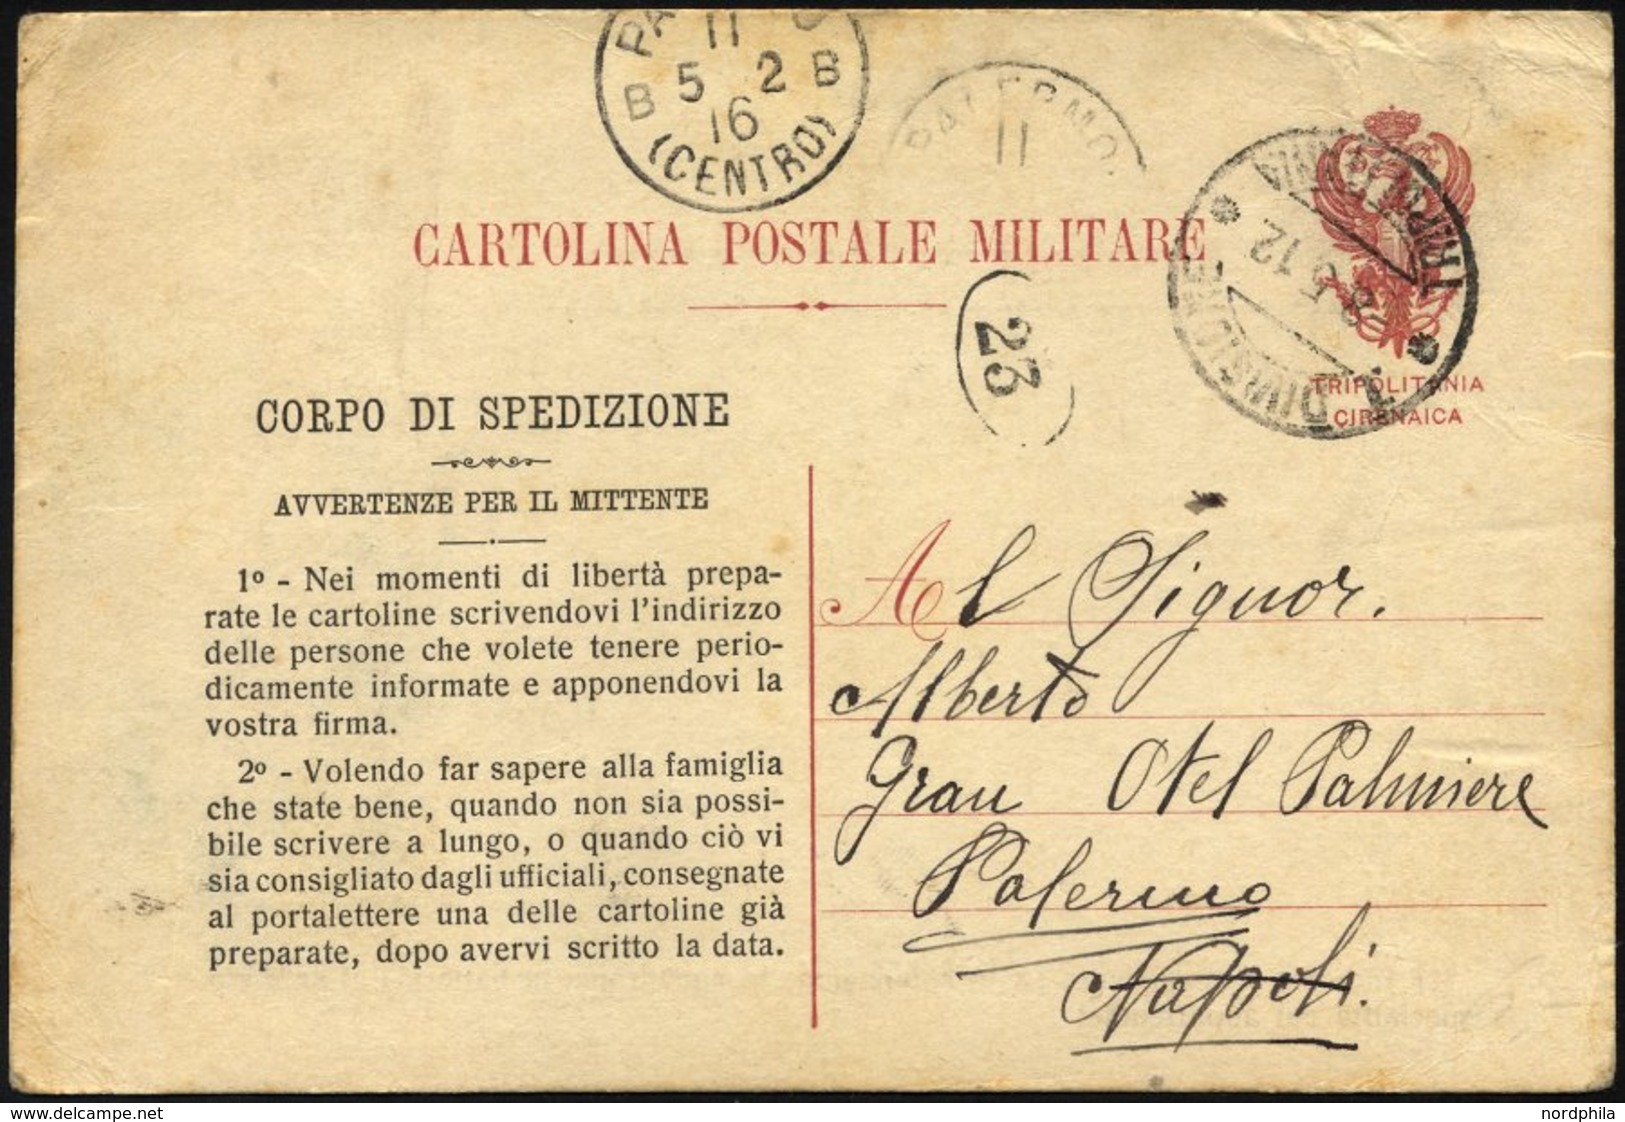 11
5 2
B B
16
(CENTRO)
PALERMO
11
CARTOLINA POSTALE MILITARE
TRIPOLITANIA
8 5 12
DIVISIONE
23
TRIPOLITANIA
CIRENAICA
CORPO DI SPEDIZIONE
AVVERTENZE PER IL MITTENTE
1º - Nei momenti di libertà prepa-
rate le cartoline scrivendovi l'indirizzo
delle persone che volete tenere perio-
dicamente informate e apponendovi la
vostra firma.
2º - Volendo far sapere alla famiglia
che state bene, quando non sia possi-
bile scrivere a lungo, o quando ciò vi
sia consigliato dagli ufficiali, consegnate
al portalettere una delle cartoline già
preparate, dopo avervi scritto la data.
Al Signor.
Alberto
Gran Otel Palmiere
Palermo
Napoli.
nordphila